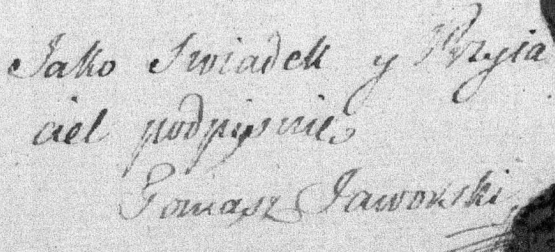 Jako Swiadek y Przyia
ciel podpisuię
Tomasz Jaworski